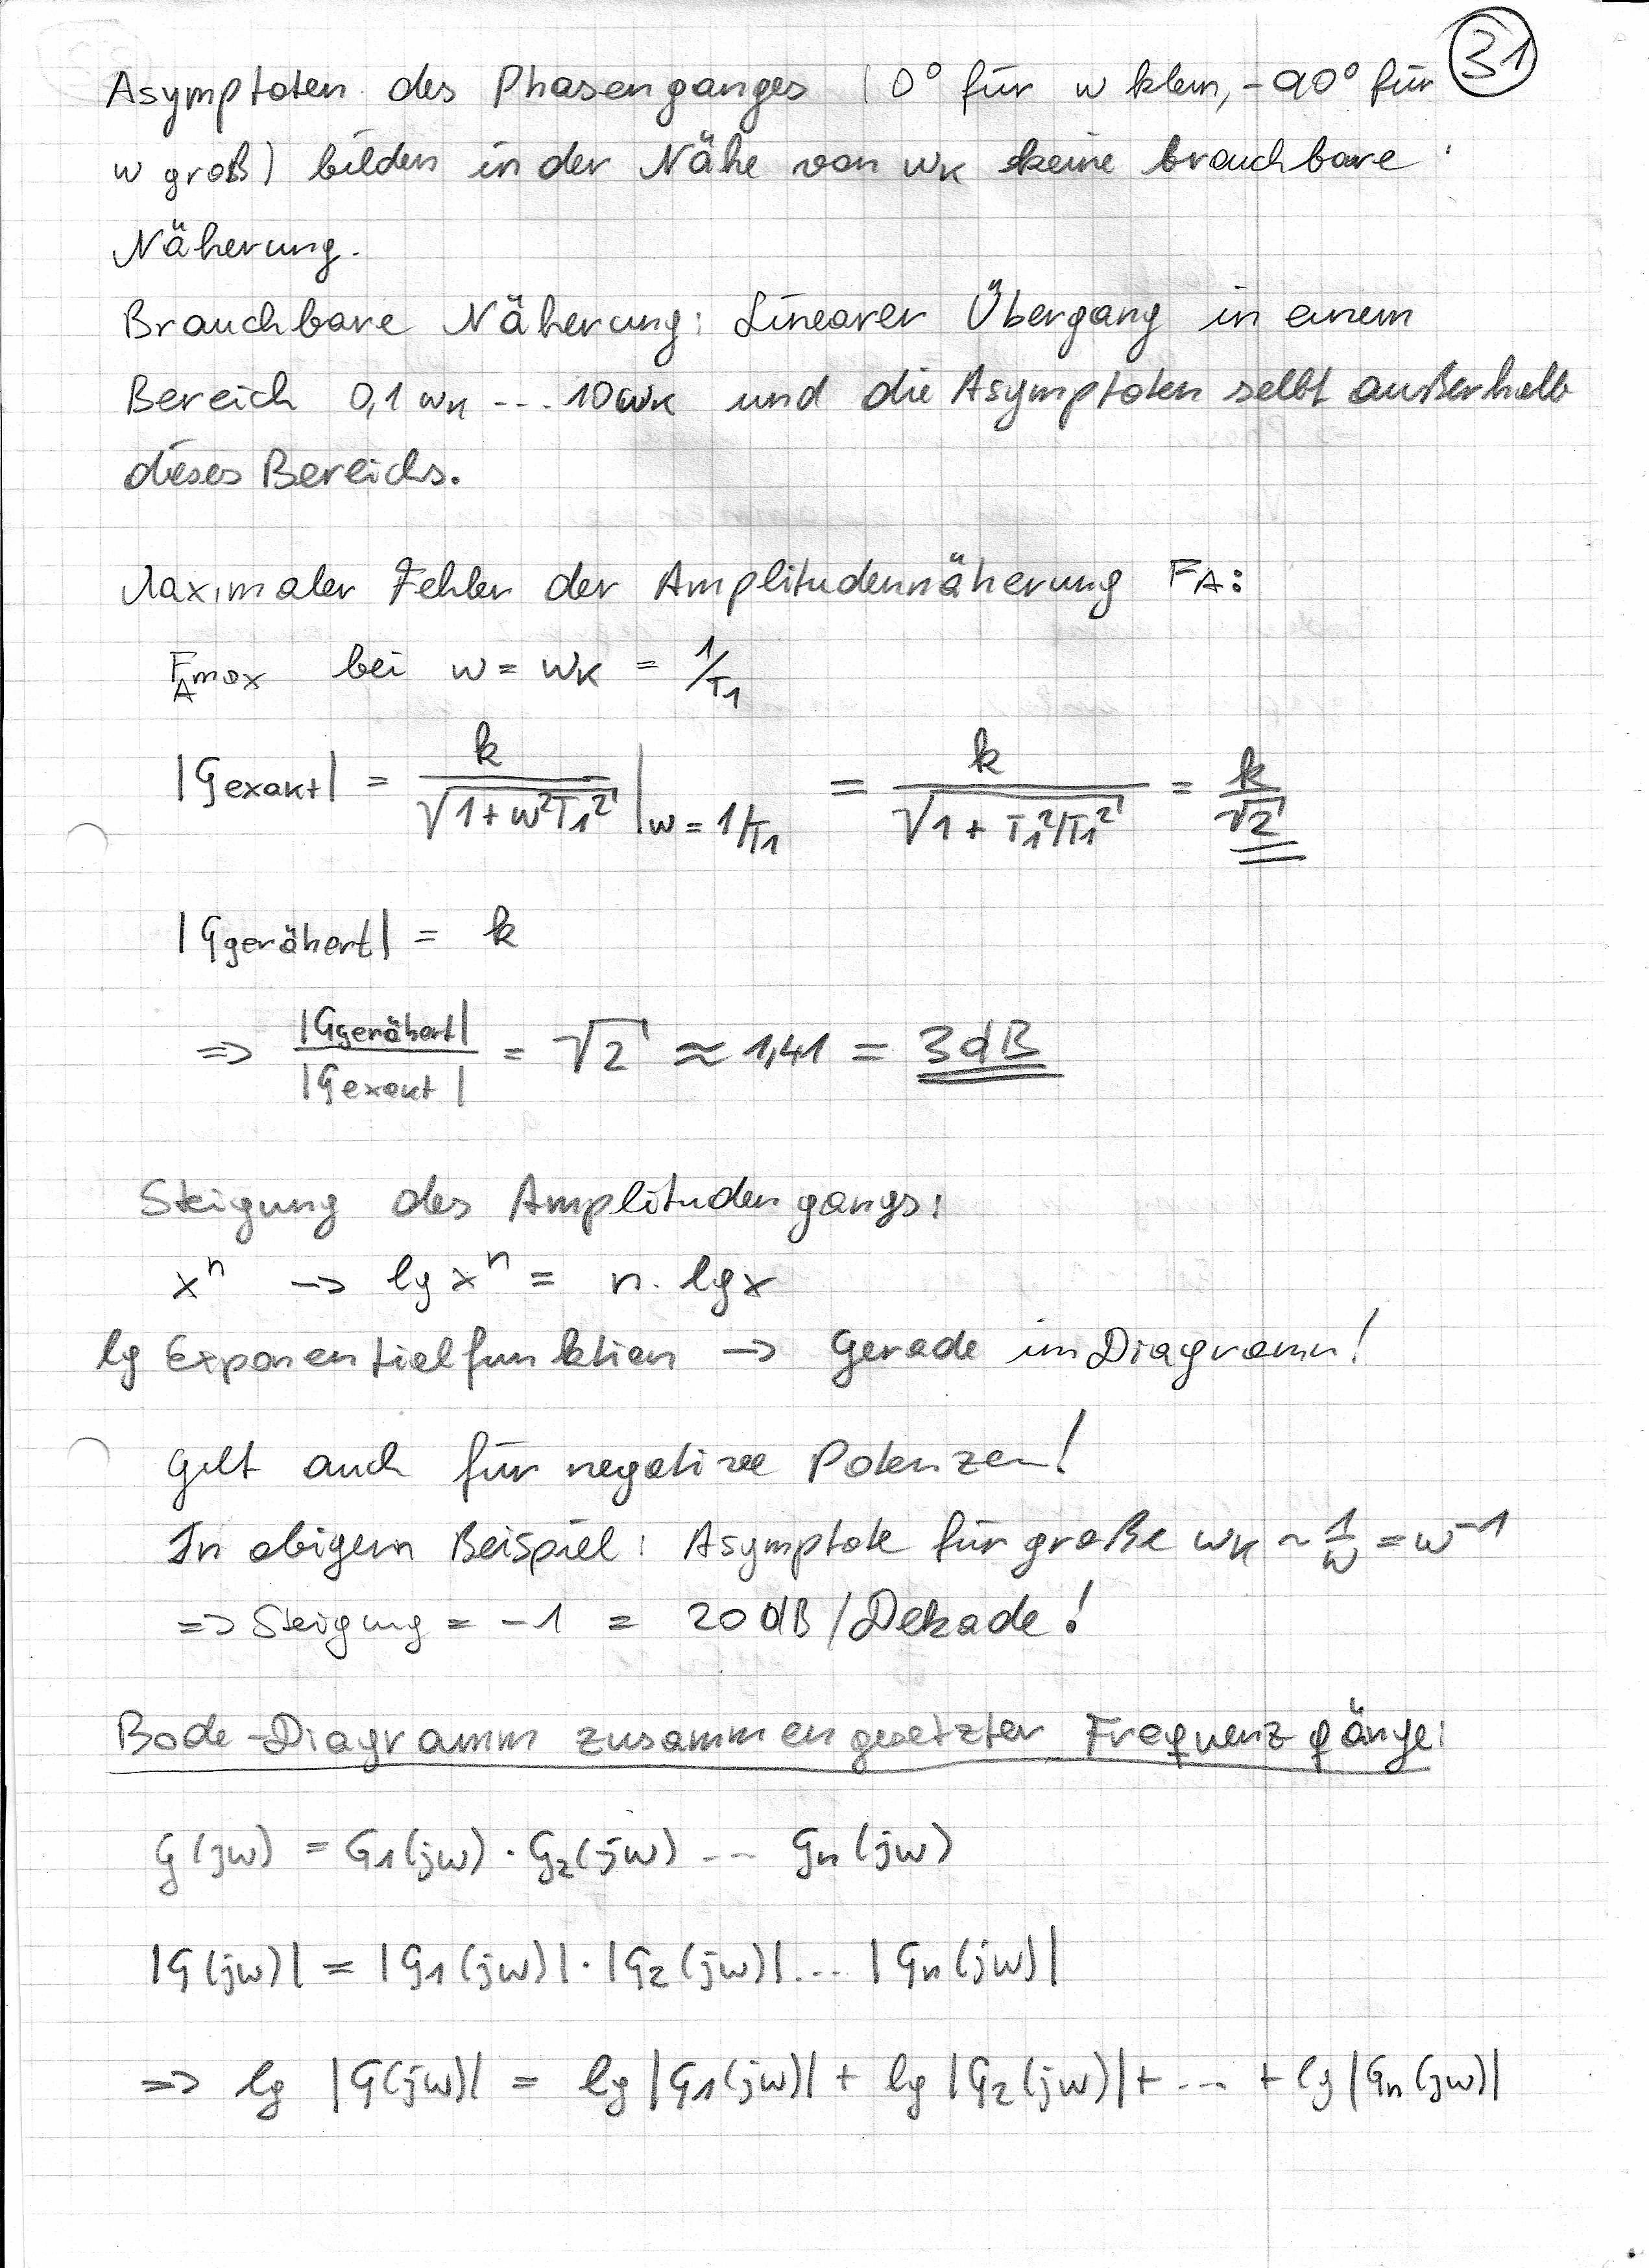 31
Asymptoten des Phasenganges (0° für ω klein, -90° für
ω groß) bilden in der Nähe von ωK keine brauchbare
Näherung.
Brauchbare Näherung: Linearer Übergang in einem
Bereich 0,1 ωK --- 10ωK und die Asymptoten selbt außerhalb
dieses Bereichs.
Maximaler Fehler der Amplitudennäherung FA:
FAmax bei ω = ωK = 1/T1
|Gexakt| = k / √(1+ω²T1²) |ω = 1/T1 = k / √(1 + T1²/T1²) = k/√2
|Ggenähert| = k
=> |Ggenähert| / |Gexakt| = √2 ≈ 1,41 = 3dB
Steigung des Amplitudengangs:
xⁿ -> lg xⁿ = n · lg x
lg Exponentialfunktion -> Gerade im Diagramm!
Gilt auch für negative Potenzen!
In obigem Beispiel: Asymptote für große ωK ~ 1/ω = ω⁻¹
=> Steigung = -1 = 20 dB/Dekade!
Bode-Diagramm zusammengesetzter Frequenzgänge:
G(jω) = G1(jω) · G2(jω) --- Gn(jω)
|G(jω)| = |G1(jω)| · |G2(jω)| ... |Gn(jω)|
=> lg |G(jω)| = lg |G1(jω)| + lg |G2(jω)| + --- + lg |Gn(jω)|